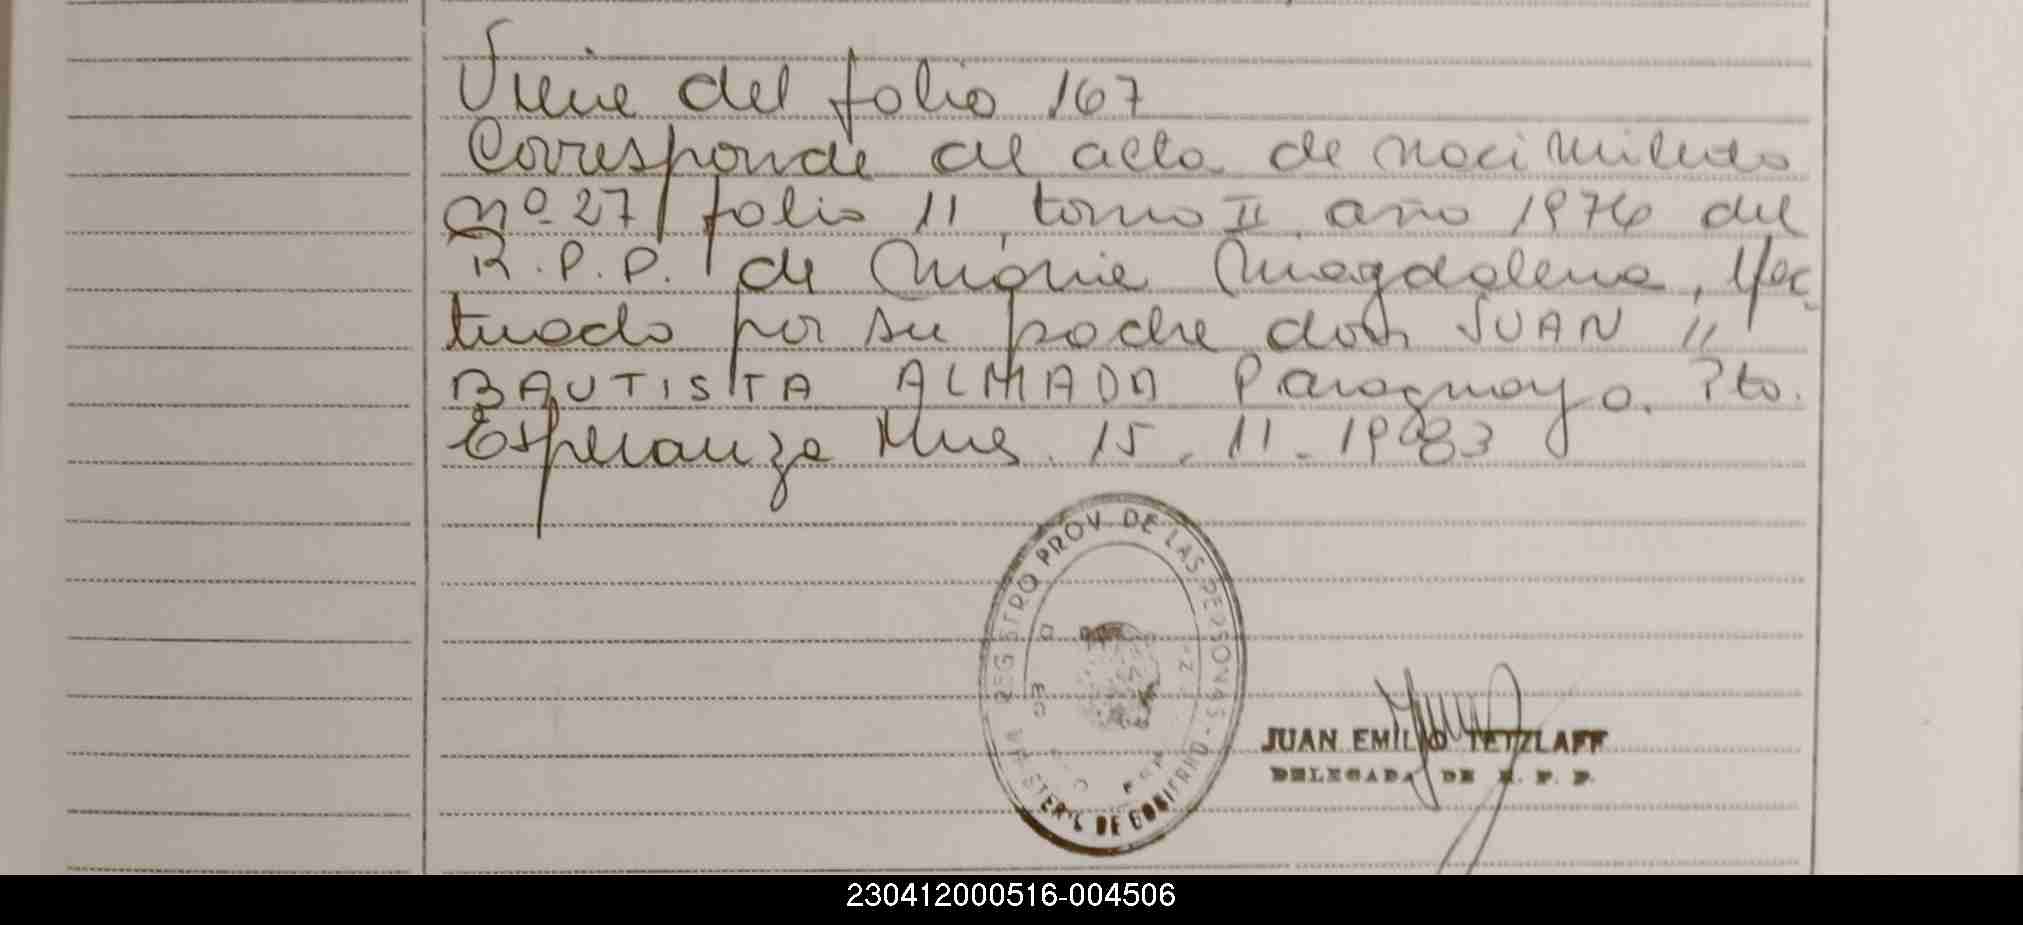 Viene del folio 167
Corresponde al acta de nacimiento
Nº 27 folio 11, tomo II año 1976 del
R.P.P. de María Magdalena, efec
tuado por su padre don JUAN "
BAUTISTA ALMADA Paraguayo. Pto.
Esperanza Mnes. 15.11.1983
REGISTRO PROV. DE LAS PERSONAS - MINISTERIO DE GOBIERNO -
JUAN EMILIO TETZLAFF
DELEGADA DE R. P. P.
230412000516-004506